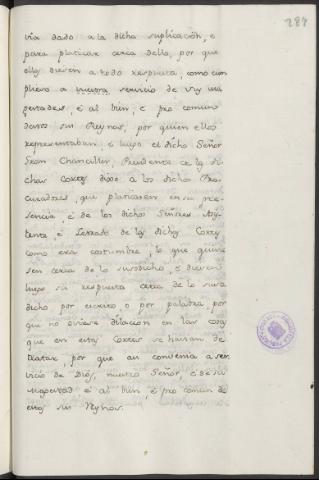 287
via dado a la dicha suplicación, e
para platicar cerca dello, por que
ellos diesen a todo respuesta, como cum
pliese a vuestro servicio de Sus Ma
gestades, é al bien, é pro comun
destos sus Reynos, por quien ellos
representaban, é luego el dicho Señor
Gran Chanciller, Presidente de las di
chas Cortes dixo a los dichos Pro
curadores, que platicasen en su pre
sencia, é de los dichos Señores Asis
tente, é Letrado de las dichas Cortes
como era costumbre, lo que quisie
sen cerca de lo susodicho, é diesen
luego su respuesta cerca de lo suso
dicho por escrito o por palabra, por
que no oviese dilacion en las cosas
que en estas Cortes se havian de
tratar, por que asi convenia a ser
vicio de Dios, nuestro Señor, é de su
Magestad é al bien, é pro comun de
estos sus Reynos.